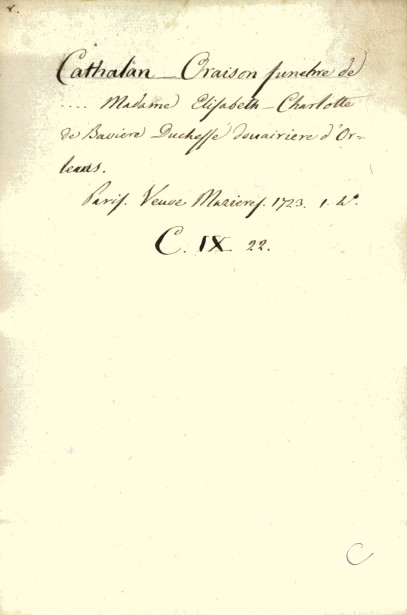 8.
Cathalan _ Oraison funebre de
.... Madame Elisabeth-Charlotte
de Baviere Duchesse douairiere d'Or-
leans.
Paris. Veuve Mazieres. 1723. 1. 4°.
C. IX 22.
C